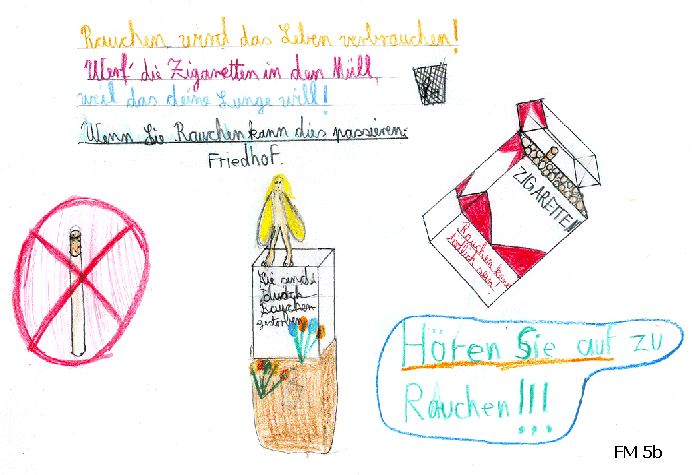 Rauchen wird das Leben verbrauchen!
Werf' die Zigaretten in den Müll,
weil das deine Lunge will!
Wenn Sie Rauchen kann dies passieren:
Friedhof.
ZIGARETTEN
Rauchen kann
tödlich sein
Sie sind
Rauchen
gestorben
Hören Sie auf zu
Rauchen!!!
FM 5b